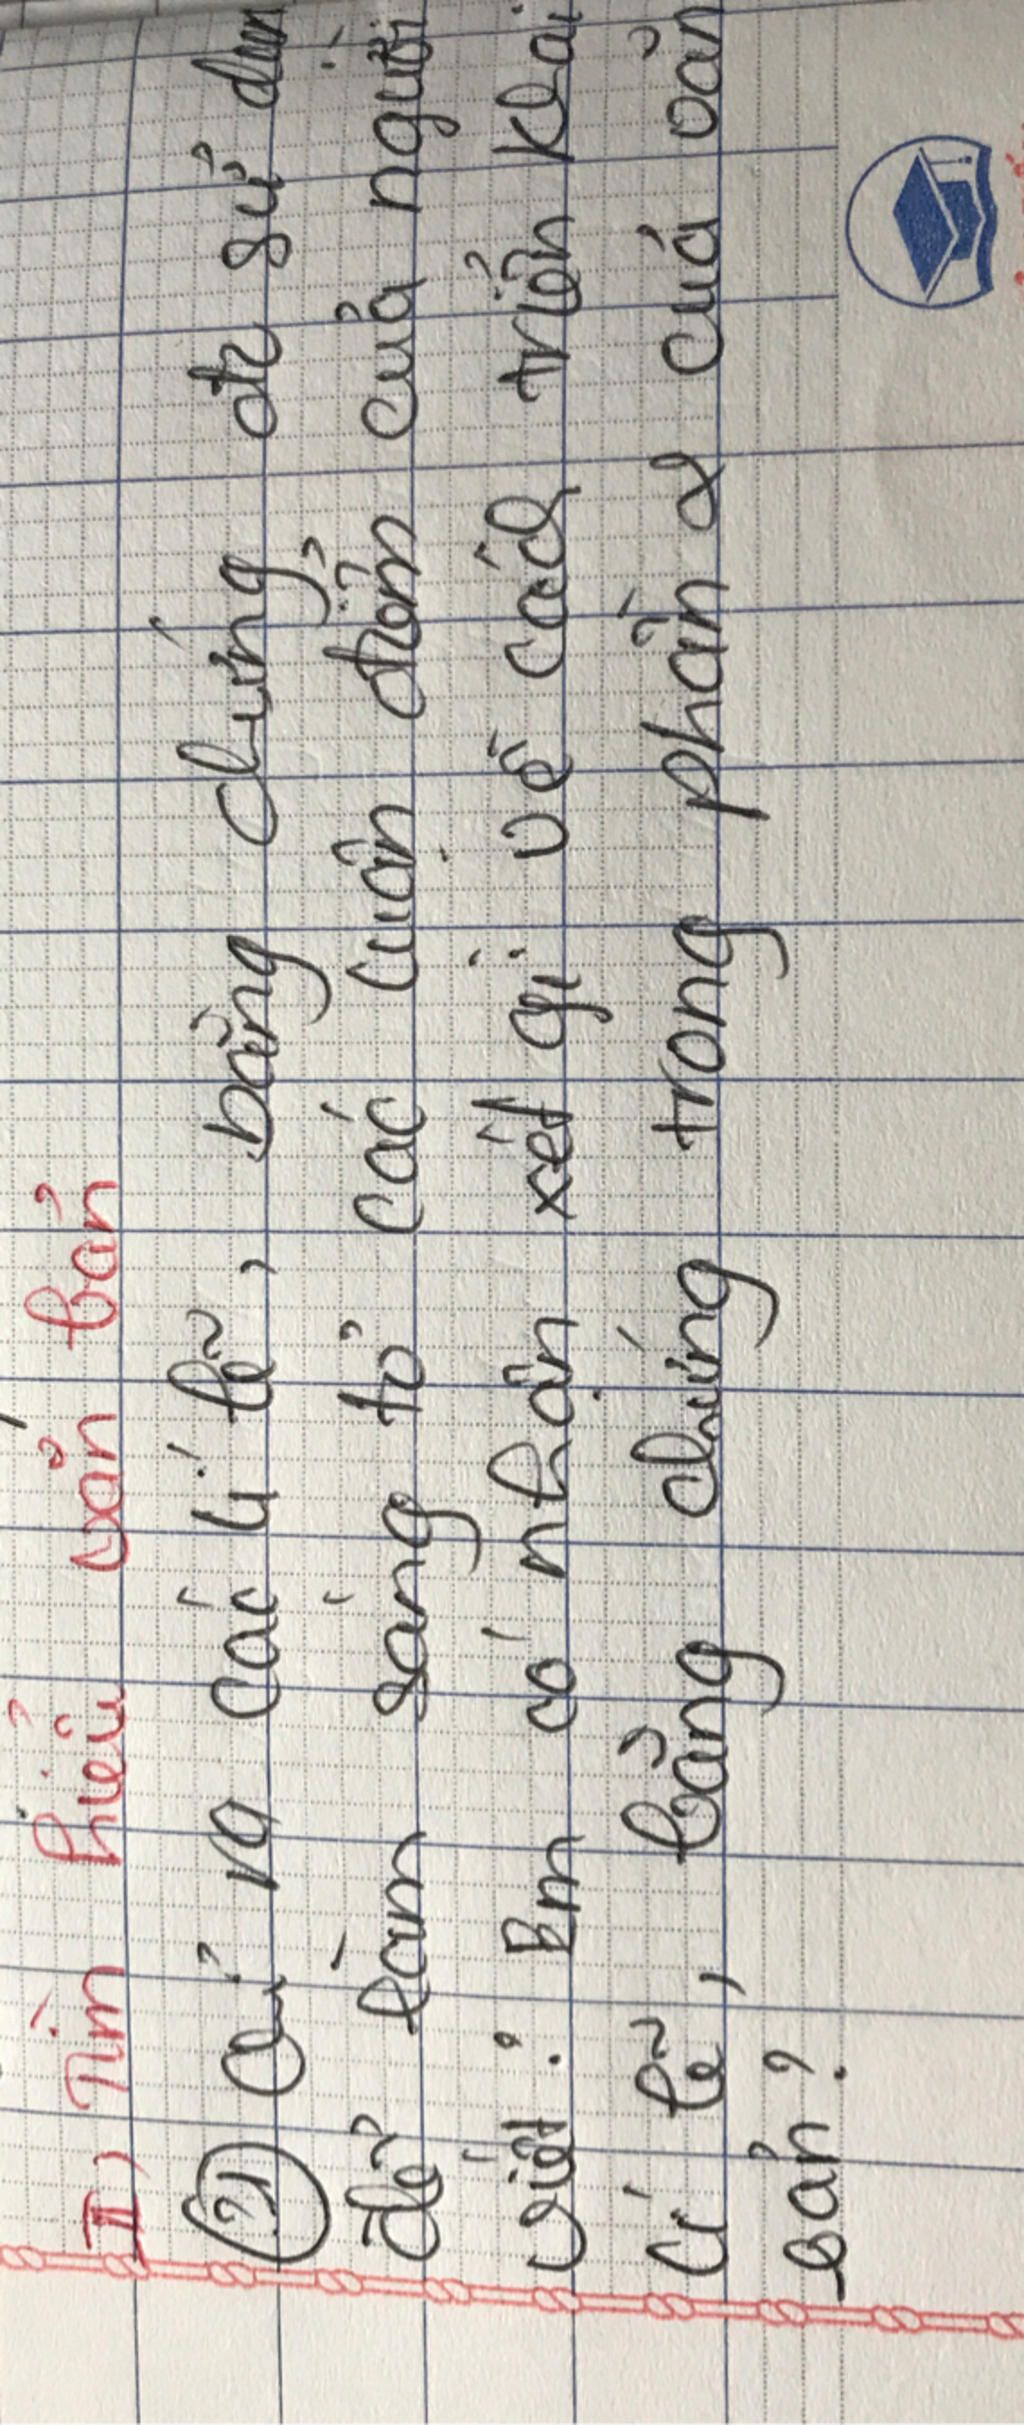 II, Tìm hiểu văn bản
(?) Chỉ ra các lí lẽ, bằng chứng đc sử
để làm sáng tỏ các luận điểm của người
viết. Em có nhận xét gì về cách triển khai
lí lẽ, bằng chứng trong phần 2 của văn
bản?